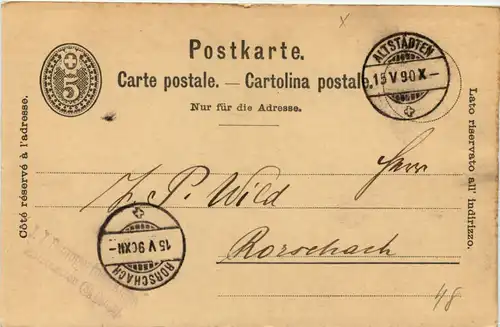 Postkarte.
Carte postale. — Cartolina postale.
Nur für die Adresse.
5
ALTSTÄDTEN
15 V 90 X–
Côté réservé à l'adresse.
Lato riservato all' indirizzo.
Herr
P. Wild
Rorschach
15 V 90 XII–
RORSCHACH
48